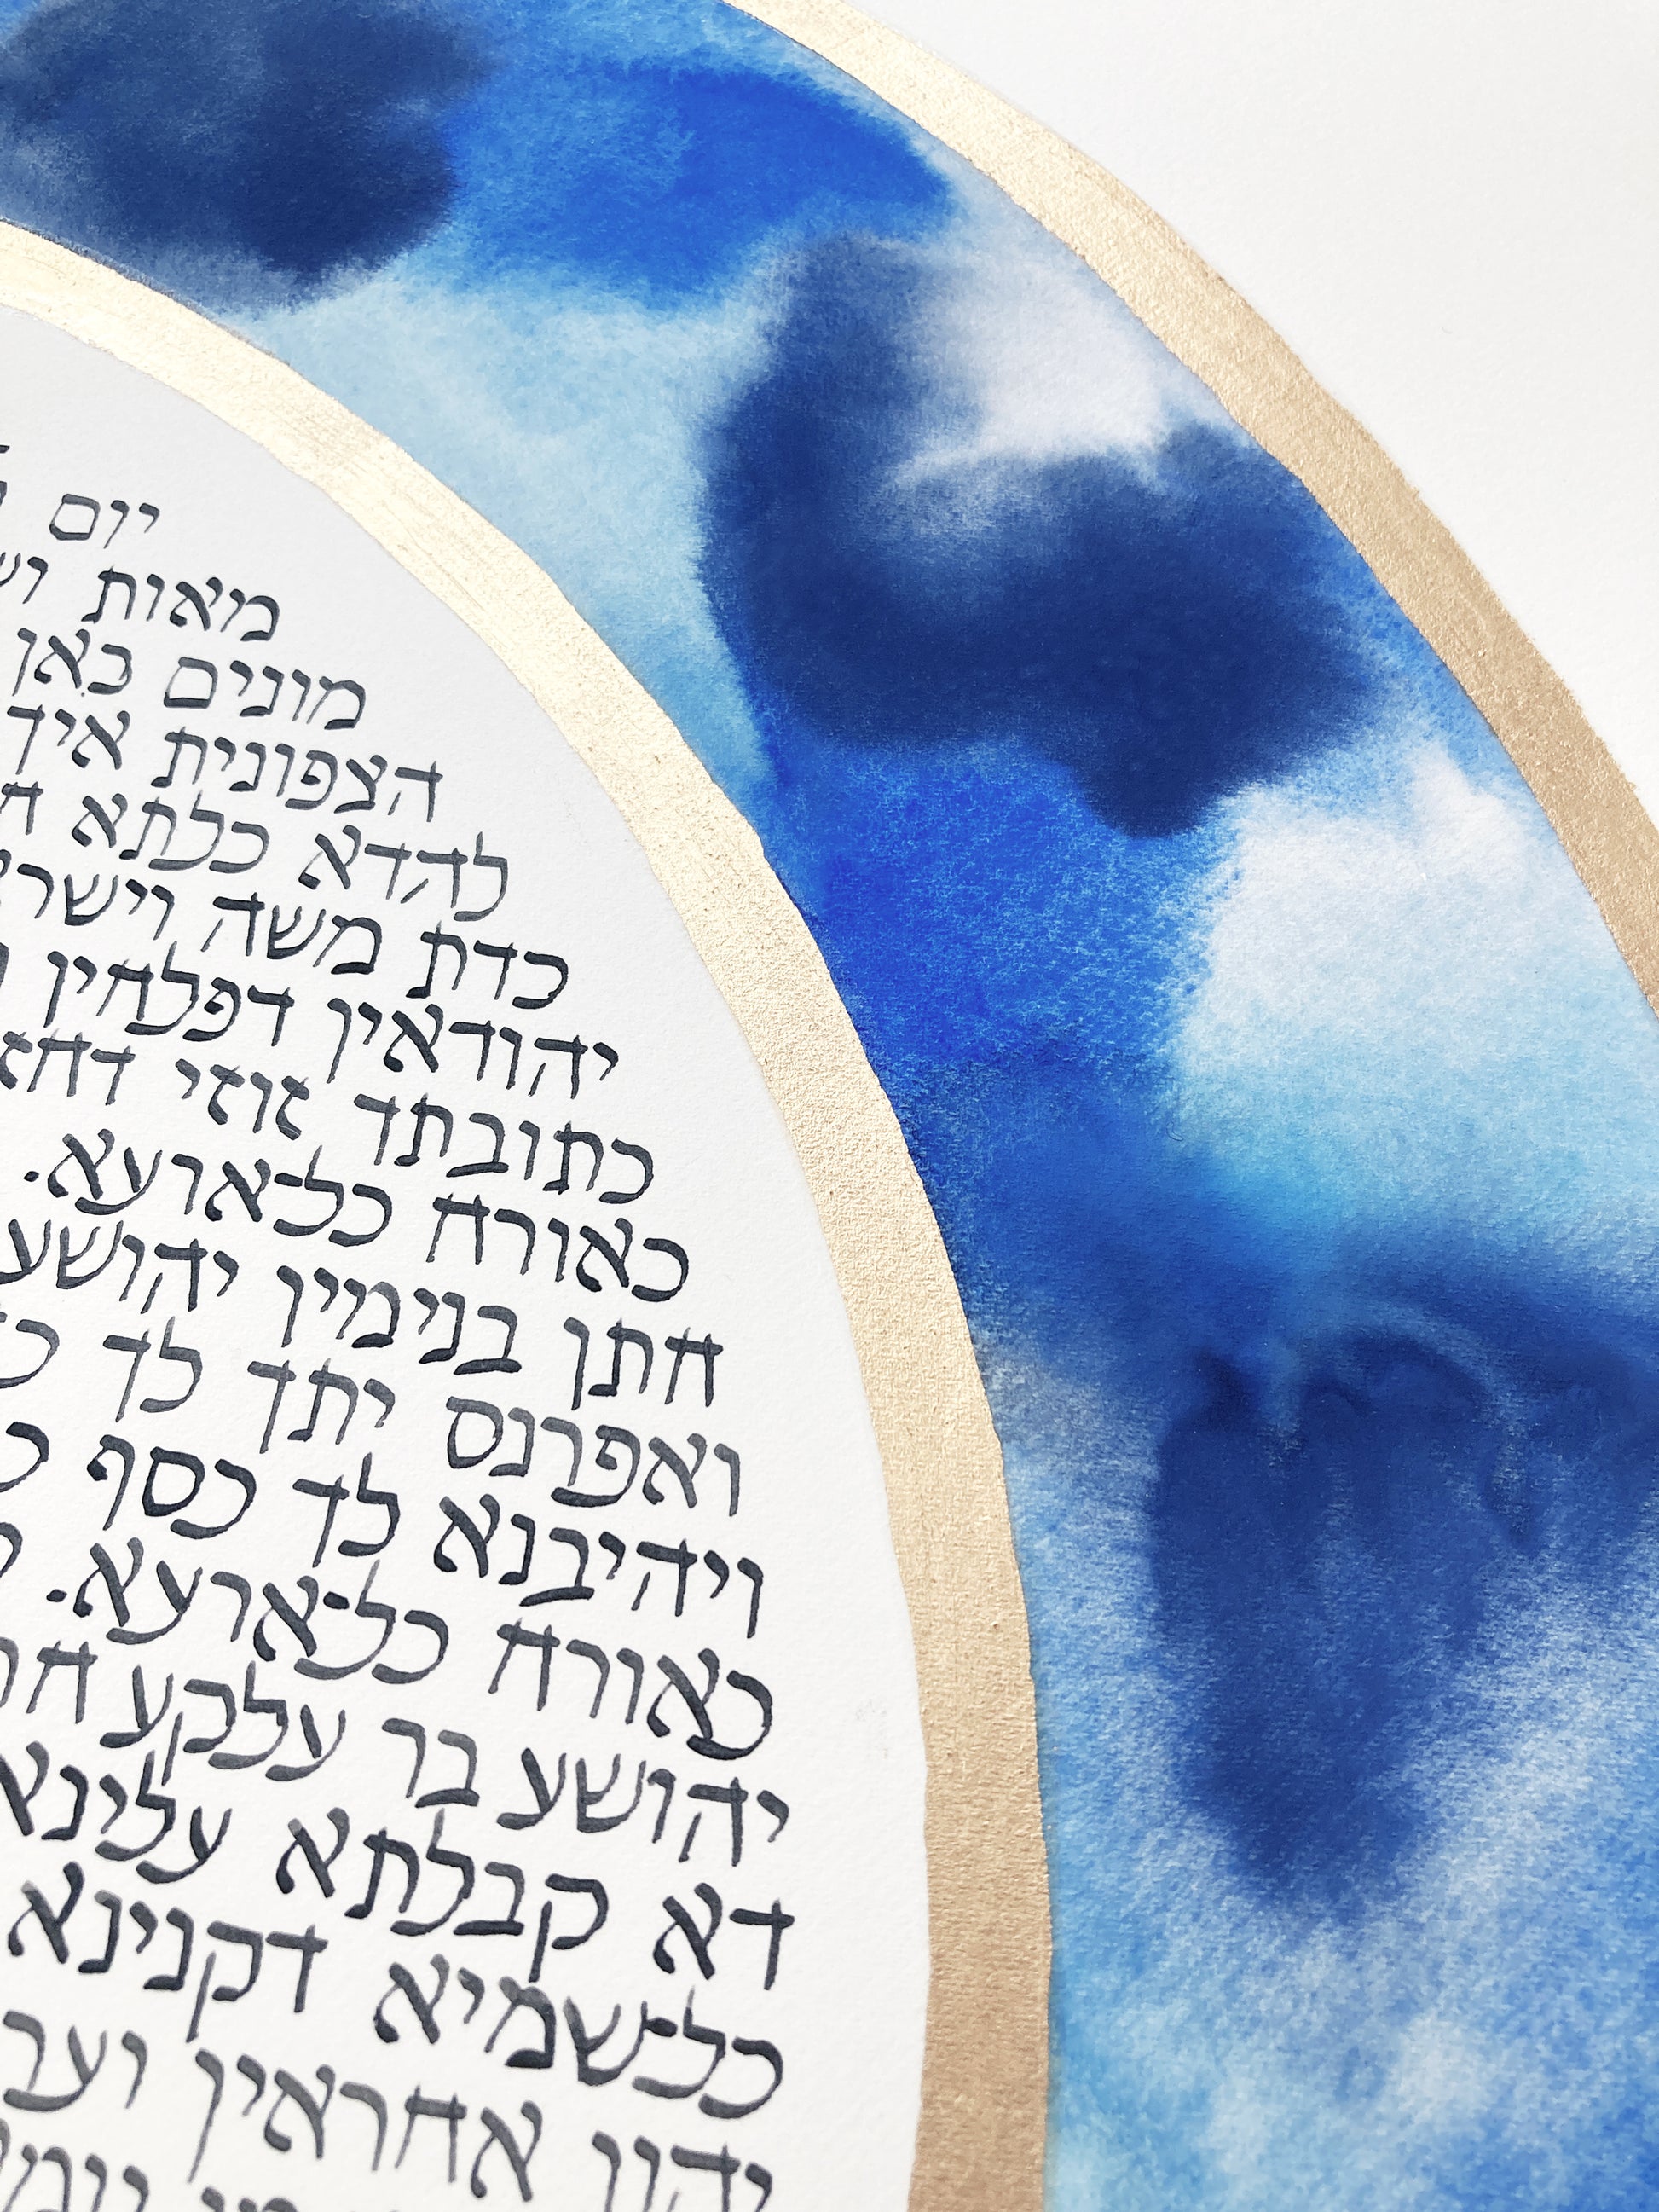 יום
מאות
מונים כאן
הצפונית איך
להדא כלתא
כדת משה
יהודאין דפלחין
כתובתד זוזי
כאורח כל־ארעא.
חתן בנימין יהושע
ואפרנס יתך לך
ויהיבנא לך כסף
כאורח כל־ארעא.
יהושע בר עלקע
דא קבלתא עלינא
כל־שמיא דקנינא
יהון אחראין